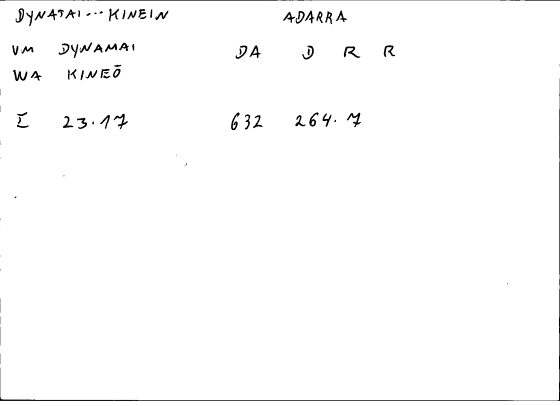 DYNATAI...KINEIN ADARRA
VM DYNAMAI DA D R R
WA KINEŌ
Σ 23.17 632 264.7